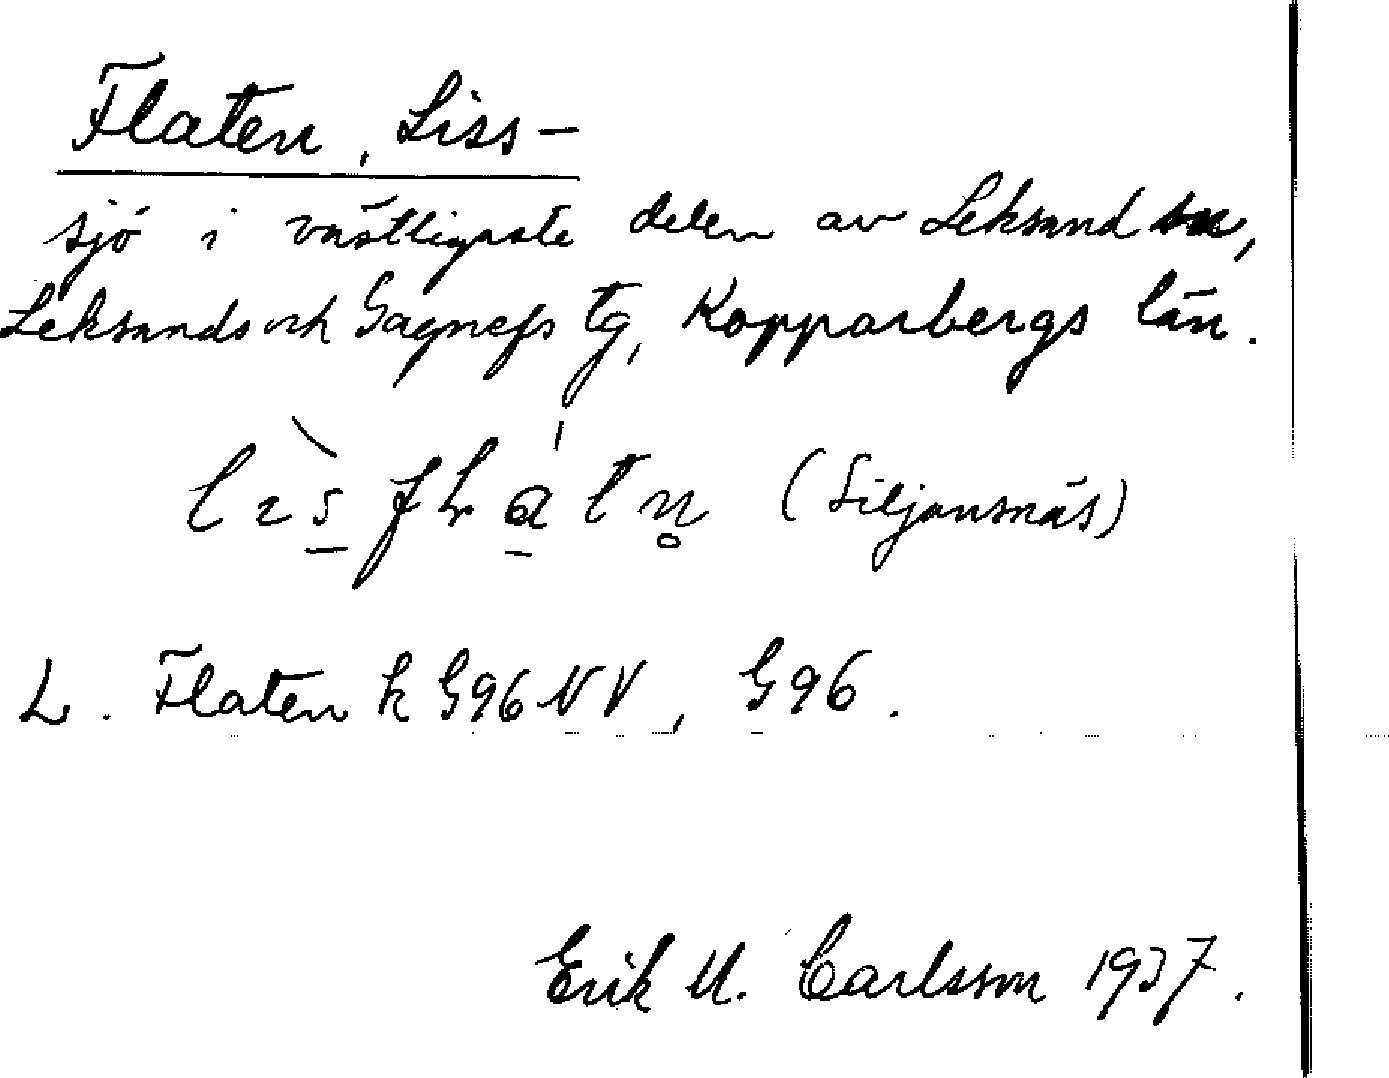 Flaten, Liss-
sjö i västligaste delen av Leksand sn,
Leksands och Gagnefs tg, Kopparbergs län.
(Siljansnäs)
L. Flaten k G96 NV, G96.
Erik M. Carlsson 1937.